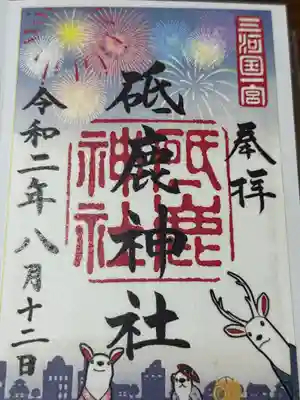 三河国一宮
奉拝
砥鹿神社
砥鹿神社
令和二年八月十二日